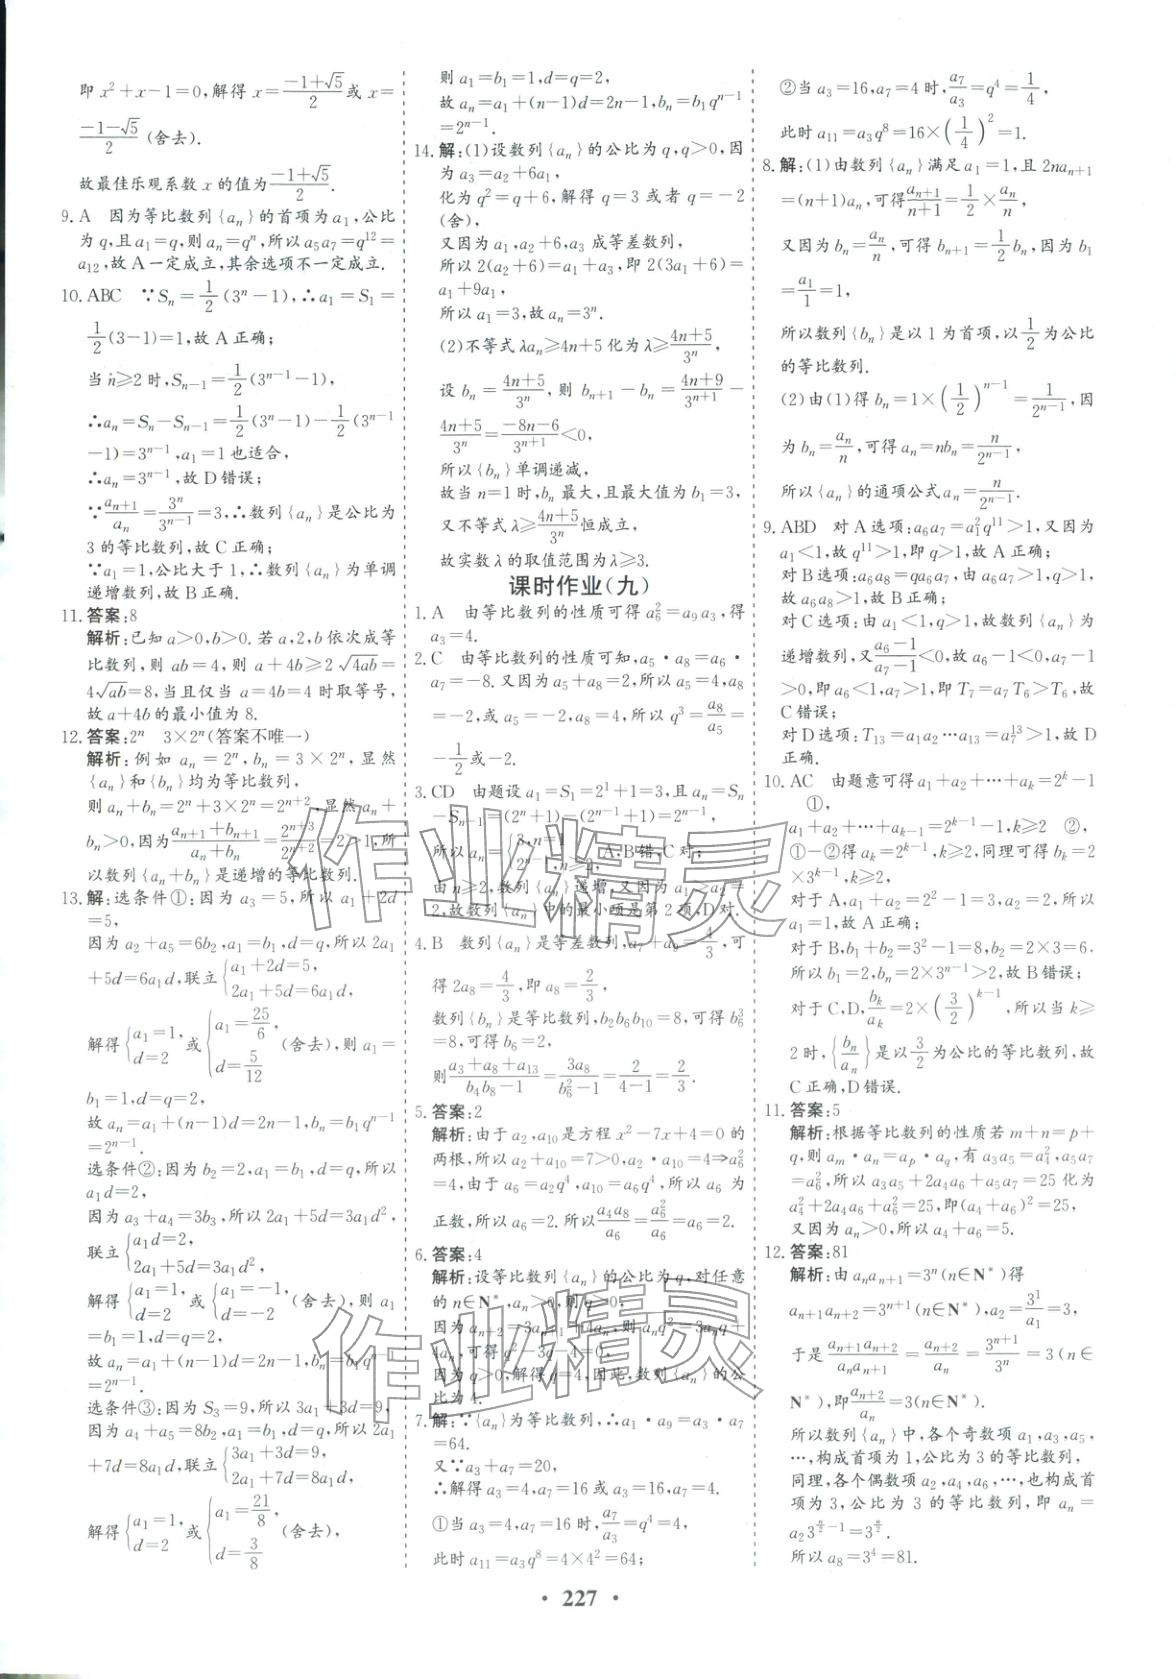 即 x²+x-1=0,解得 x=(-1+√5)/2 或 x=
(-1-√5)/2 (舍去).
故最佳乐观系数 x 的值为 (-1+√5)/2.
9. A 因为等比数列{aₙ}的首项为 a₁,公比
为 q,且 a₁=q,则 aₙ=qⁿ,所以 a₅a₇=q¹²=
a₁₂,故 A 一定成立,其余选项不一定成立.
10. ABC ∵Sₙ=1/2(3ⁿ-1),∴a₁=S₁=
1/2(3-1)=1,故 A 正确;
当 n≥2 时,Sₙ₋₁=1/2(3ⁿ⁻¹-1),
∴aₙ=Sₙ-Sₙ₋₁=1/2(3ⁿ-1)-1/2(3ⁿ⁻¹
-1)=3ⁿ⁻¹,a₁=1也适合,
∴aₙ=3ⁿ⁻¹,故 D 错误;
∵aₙ₊₁/aₙ=3ⁿ/3ⁿ⁻¹=3,∴数列{aₙ}是公比为
3 的等比数列,故 C 正确;
∵a₁=1,公比大于 1,∴数列{aₙ}为单调
递增数列,故 B 正确.
11. 答案:8
解析:已知 a>0,b>0. 若 a,2,b 依次成等
比数列,则 ab=4,则 a+4b≥2√(4ab)=
4√(ab)=8,当且仅当 a=4b=4 时取等号,
故 a+4b 的最小值为 8.
12. 答案:2ⁿ 3×2ⁿ(答案不唯一)
解析:例如 aₙ=2ⁿ,bₙ=3×2ⁿ,显然
{aₙ}和{bₙ}均为等比数列,
则 aₙ+bₙ=2ⁿ+3×2ⁿ=2ⁿ⁺²,显然 aₙ+
bₙ>0,因为(aₙ₊₁+bₙ₊₁)/(aₙ+bₙ)=2ⁿ⁺³/2ⁿ⁺²=2>1,所
以数列{aₙ+bₙ}是递增的等比数列.
13. 解:选条件①:因为 a₃=5,所以 a₁+2d
=5,
因为 a₂+a₅=6b₂,a₁=b₁,d=q,所以 2a₁
+5d=6a₁d,联立{a₁+2d=5, 2a₁+5d=6a₁d,
解得{a₁=1, d=2 或{a₁=25/6, d=5/12 (舍去),则 a₁=
b₁=1,d=q=2,
故 aₙ=a₁+(n-1)d=2n-1,bₙ=b₁qⁿ⁻¹
=2ⁿ⁻¹.
选条件②:因为 b₂=2,a₁=b₁,d=q,所以
a₁d=2,
因为 a₃+a₄=3b₃,所以 2a₁+5d=3a₁d²,
联立{a₁d=2, 2a₁+5d=3a₁d²,
解得{a₁=1, d=2 或{a₁=-1, d=-2 (舍去),则 a₁
=b₁=1,d=q=2,
故 aₙ=a₁+(n-1)d=2n-1,bₙ=b₁qⁿ⁻¹
=2ⁿ⁻¹.
选条件③:因为 S₃=9,所以 3a₁+3d=9,
因为 a₄+a₅=8b₂,a₁=b₁,d=q,所以 2a₁
+7d=8a₁d,联立{3a₁+3d=9, 2a₁+7d=8a₁d,
解得{a₁=1, d=2 或{a₁=21/8, d=3/8 (舍去),
则 a₁=b₁=1,d=q=2,
故 aₙ=a₁+(n-1)d=2n-1,bₙ=b₁qⁿ⁻¹
=2ⁿ⁻¹.
14. 解:(1)设数列{aₙ}的公比为 q,q>0,因
为 a₃=a₂+6a₁,
化为 q²=q+6,解得 q=3 或者 q=-2
(舍),
又因为 a₁,a₂+6,a₃ 成等差数列,
所以 2(a₂+6)=a₁+a₃,即 2(3a₁+6)=
a₁+9a₁,
所以 a₁=3,故 aₙ=3ⁿ.
(2)不等式 λaₙ≥4n+5 化为 λ≥(4n+5)/3ⁿ,
设 bₙ=(4n+5)/3ⁿ,则 bₙ₊₁-bₙ=(4n+9)/3ⁿ⁺¹-
(4n+5)/3ⁿ=(-8n-6)/3ⁿ⁺¹<0,
所以{bₙ}单调递减,
故当 n=1 时,bₙ 最大,且最大值为 b₁=3,
又不等式 λ≥(4n+5)/3ⁿ恒成立,
故实数 λ 的取值范围为 λ≥3.
课时作业(九)
1. A 由等比数列的性质可得 a₆²=a₉a₃,得
a₃=4.
2. C 由等比数列的性质可知,a₅·a₈=a₆·
a₇=-8. 又因为 a₅+a₈=2,所以 a₅=4,a₈
=-2,或 a₅=-2,a₈=4,所以 q³=a₈/a₅=
-1/2或-2.
3. CD 由题设 a₁=S₁=2¹+1=3,且 aₙ=Sₙ
-Sₙ₋₁=(2ⁿ+1)-(2ⁿ⁻¹+1)=2ⁿ⁻¹,
所以 aₙ={3,n=1, 2ⁿ⁻¹,n≥2, A、B 错,C 对;
由 n≥2,数列{aₙ}递增,又因为 a₁>a₂=
2,故数列{aₙ}中的最小项是第 2 项,D 对.
4. B 数列{aₙ}是等差数列,a₇+a₉=4/3,可
得 2a₈=4/3,即 a₈=2/3,
数列{bₙ}是等比数列,b₂b₆b₁₀=8,可得 b₆³
=8,可得 b₆=2,
则(a₃+a₈+a₁₃)/(b₄b₈-1)=3a₈/(b₆²-1)=2/(4-1)=2/3.
5. 答案:2
解析:由于 a₂,a₁₀是方程 x²-7x+4=0 的
两根,所以 a₂+a₁₀=7>0,a₂·a₁₀=4⇒a₆²
=4,由于 a₆=a₂q⁴,a₁₀=a₆q⁴,所以 a₆ 为
正数,所以 a₆=2. 所以a₄a₈/a₆=a₆²/a₆=a₆=2.
6. 答案:4
解析:设等比数列{aₙ}的公比为 q,对任意
的 n∈N*,aₙ>0,则 q>0,
因为 aₙ₊₂=3aₙ₊₁+4aₙ,则 aₙq²=3aₙq+
4aₙ,可得 q²-3q-4=0,
因为 q>0,解得 q=4,因此,数列{aₙ}的公
比为 4.
7. 解:∵{aₙ}为等比数列,∴a₁·a₉=a₃·a₇
=64.
又∵a₃+a₇=20,
∴解得 a₃=4,a₇=16 或 a₃=16,a₇=4.
①当 a₃=4,a₇=16 时,a₇/a₃=q⁴=4,
此时 a₁₁=a₃q⁸=4×4²=64;
②当 a₃=16,a₇=4 时,a₇/a₃=q⁴=1/4,
此时 a₁₁=a₃q⁸=16×(1/4)²=1.
8. 解:(1)由数列{aₙ}满足 a₁=1,且 2naₙ₊₁
=(n+1)aₙ,可得aₙ₊₁/(n+1)=1/2×aₙ/n,
又因为 bₙ=aₙ/n,可得 bₙ₊₁=1/2bₙ,因为 b₁
=a₁/1=1,
所以数列{bₙ}是以 1 为首项,以1/2为公比
的等比数列.
(2)由(1)得 bₙ=1×(1/2)ⁿ⁻¹=1/2ⁿ⁻¹,因
为 bₙ=aₙ/n,可得 aₙ=nbₙ=n/2ⁿ⁻¹,
所以{aₙ}的通项公式 aₙ=n/2ⁿ⁻¹.
9. ABD 对 A 选项:a₆a₇=a₁²q¹¹>1,又因为
a₁<1,故 q¹¹>1,即 q>1,故 A 正确;
对 B 选项:a₆a₈=qa₆a₇,由 a₆a₇>1,q>1,故
a₆a₈>1,故 B 正确;
对 C 选项:由 a₁<1,q>1,故数列{aₙ}为
递增数列,又(a₆-1)/(a₇-1)<0,故 a₆-1<0,a₇-1
>0,即 a₆<1,a₇>1,则 T₇=a₇T₆>T₆,故
C 错误;
对 D 选项:T₁₃=a₁a₂…a₁₃=a₇¹³>1,故 D
正确.
10. AC 由题意可得 a₁+a₂+…+aₖ=2ᵏ-1
①,
a₁+a₂+…+aₖ₋₁=2ᵏ⁻¹-1,k≥2 ②,
①-②得 aₖ=2ᵏ⁻¹,k≥2,同理可得 bₖ=
2×3ᵏ⁻¹,k≥2,
对于 A,a₁+a₂=2²-1=3,a₂=2,所以
a₁=1,故 A 正确;
对于 B,b₁+b₂=3²-1=8,b₂=2×3=6,
所以 b₁=2,bₙ=2×3ⁿ⁻¹>2,故 B 错误;
对于 C,D,bₖ/aₖ=2×(3/2)ᵏ⁻¹,所以当 k≥
2 时,{bₙ/aₙ}是以3/2为公比的等比数列,故
C 正确,D 错误.
11. 答案:5
解析:根据等比数列的性质若 m+n=p+
q,则 aₘ·aₙ=aₚ·a_q,有 a₃a₅=a₄²,a₅a₇
=a₆²,所以 a₃a₅+2a₄a₆+a₅a₇=25 化为
a₄²+2a₄a₆+a₆²=25,即(a₄+a₆)²=25,
又因为 aₙ>0,所以 a₄+a₆=5.
12. 答案:81
解析:由 aₙaₙ₊₁=3ⁿ(n∈N*)得
aₙ₊₁aₙ₊₂=3ⁿ⁺¹(n∈N*),a₂=3¹/a₁=3,
于是 aₙ₊₁aₙ₊₂/aₙaₙ₊₁=aₙ₊₂/aₙ=3ⁿ⁺¹/3ⁿ=3(n∈
N*),即aₙ₊₂/aₙ=3(n∈N*).
所以数列{aₙ}中,各个奇数项 a₁,a₃,a₅,
…,构成首项为 1,公比为 3 的等比数列,
同理,各个偶数项 a₂,a₄,a₆,…,也构成首
项为 3,公比为 3 的等比数列,即 aₙ=
a₂3^(n/2-1)=3^(n/2).
所以 a₈=3⁴=81.
· 227 ·
作业精灵
作业精灵